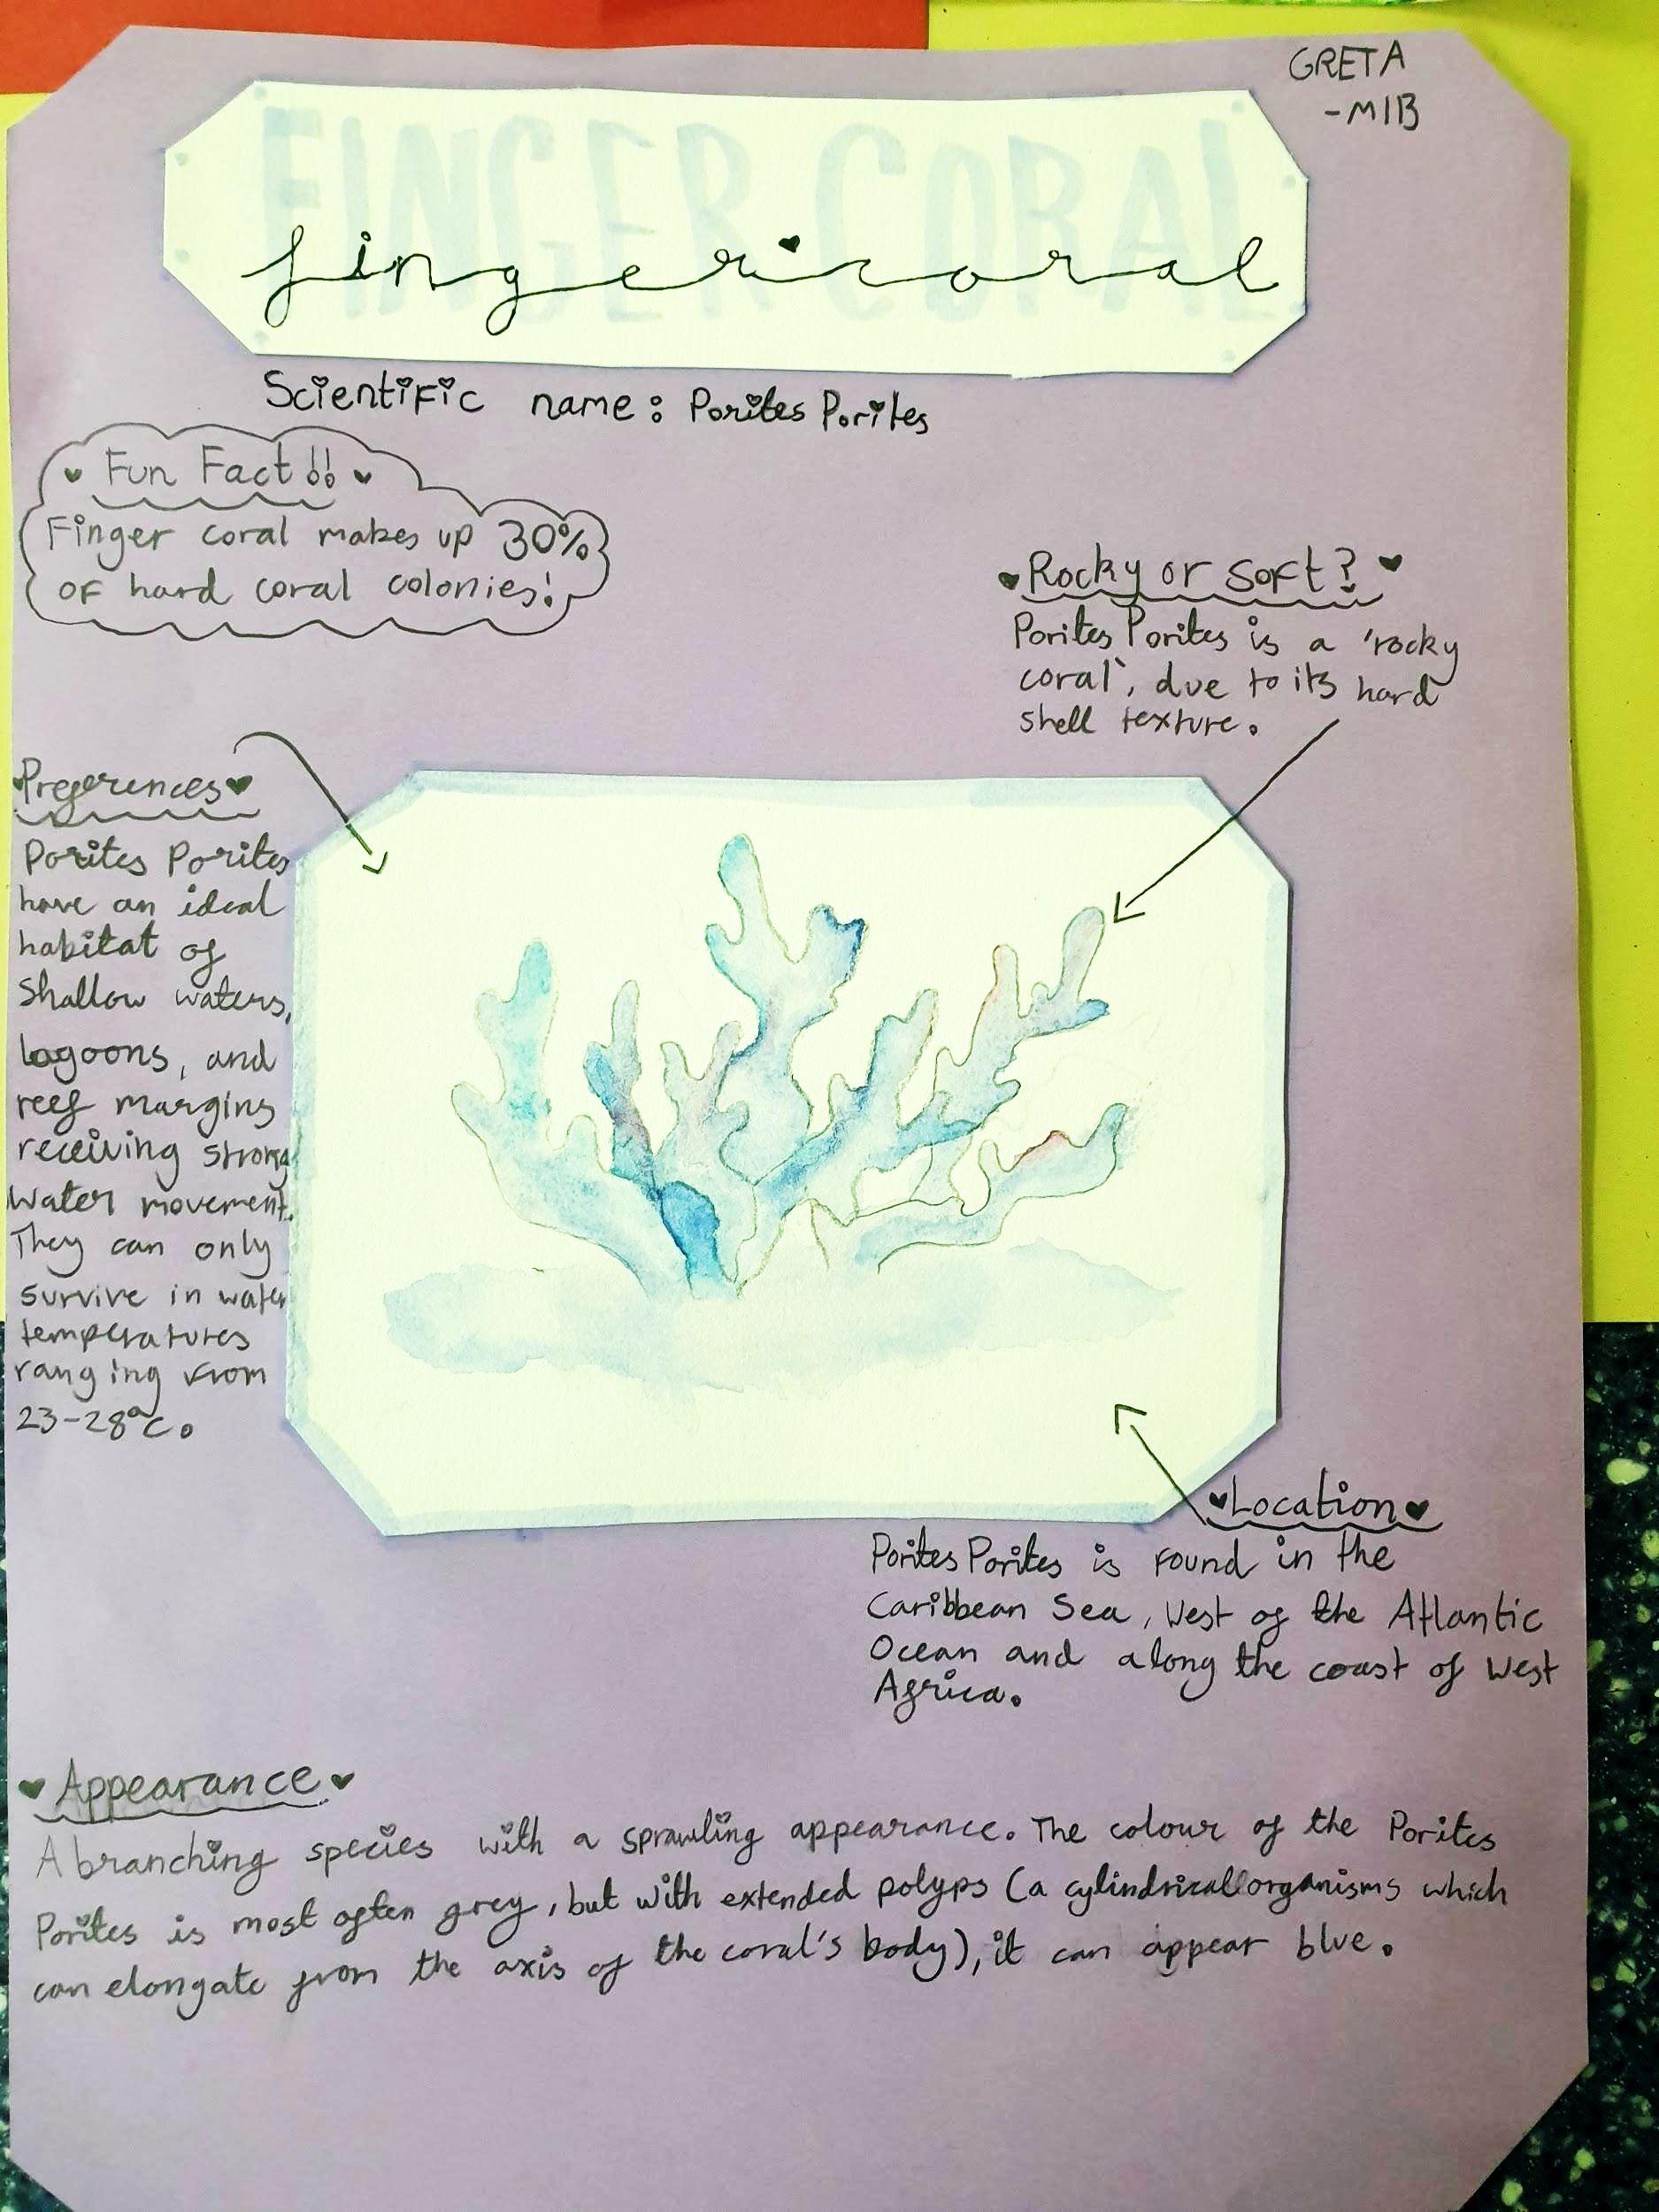 GRETA
-M1B
FINGER CORAL
finger coral
Scientific name: Porites Porites
Fun Fact!!
Finger coral makes up 30%
of hard coral colonies!
Rocky or Soft?
Porites Porites is a 'rocky
coral', due to its hard
shell texture.
Preferences
Porites Porites
have an ideal
habitat of
Shallow waters,
lagoons, and
reef margins
receiving strong
water movement.
They can only
survive in water
temperatures
ranging from
23-28°c.
Location
Porites Porites is found in the
Caribbean Sea, West of the Atlantic
Ocean and along the coast of West
Africa.
Appearance
A branching species with a sprawling appearance. The colour of the Porites
Porites is most often grey, but with extended polyps (a cylindrical organisms which
can elongate from the axis of the coral's body), it can appear blue.